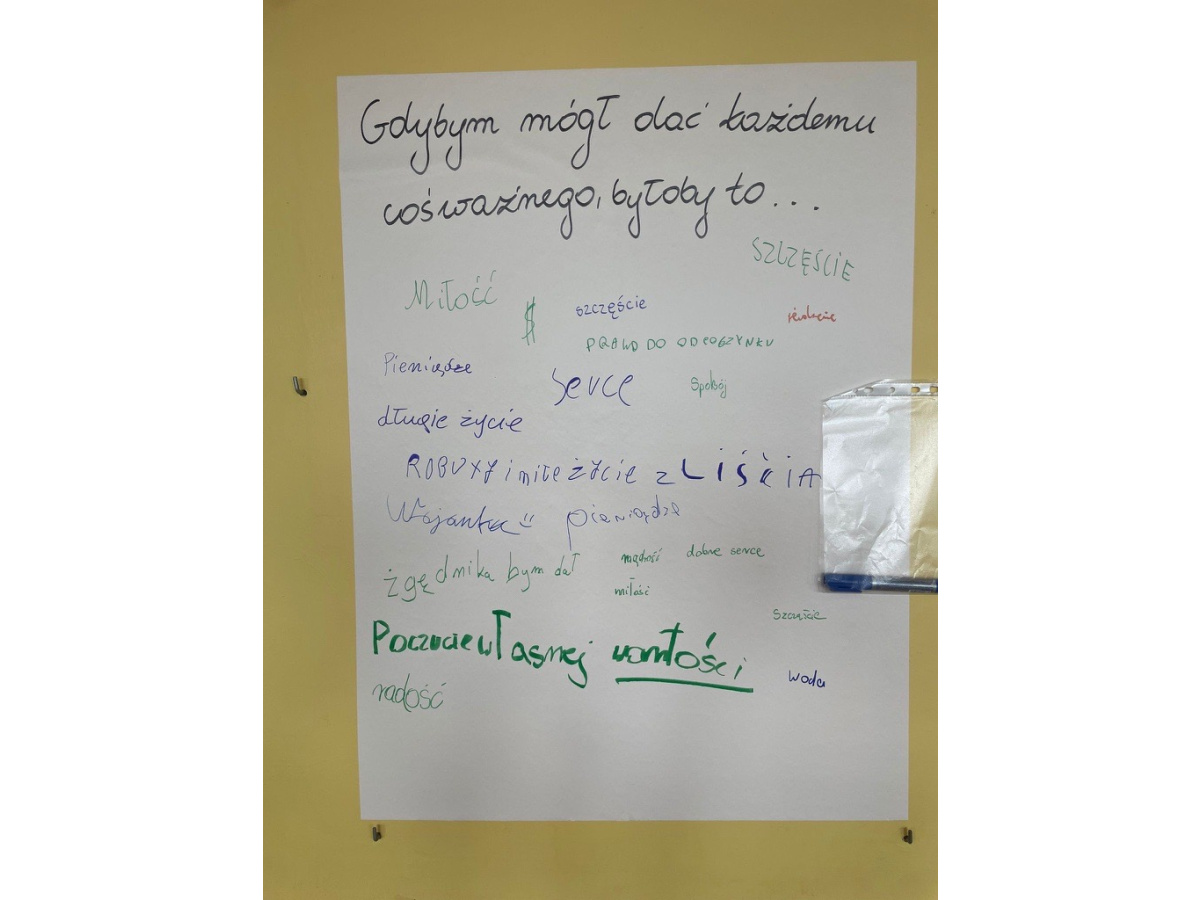 Gdybym mógł dać każdemu
coś ważnego, byłoby to...
SZCZĘŚCIE
Miłość
$
szczęście
PRAWO DO ODPOCZYNKU
Pieniądze
serce
spokój
długie życie
ROBUXY i miłe życie z LIŚCIA
pieniądze
mądrość dobre serce
bym dał
miłość
Poczucie własnej wartości
woda
radość